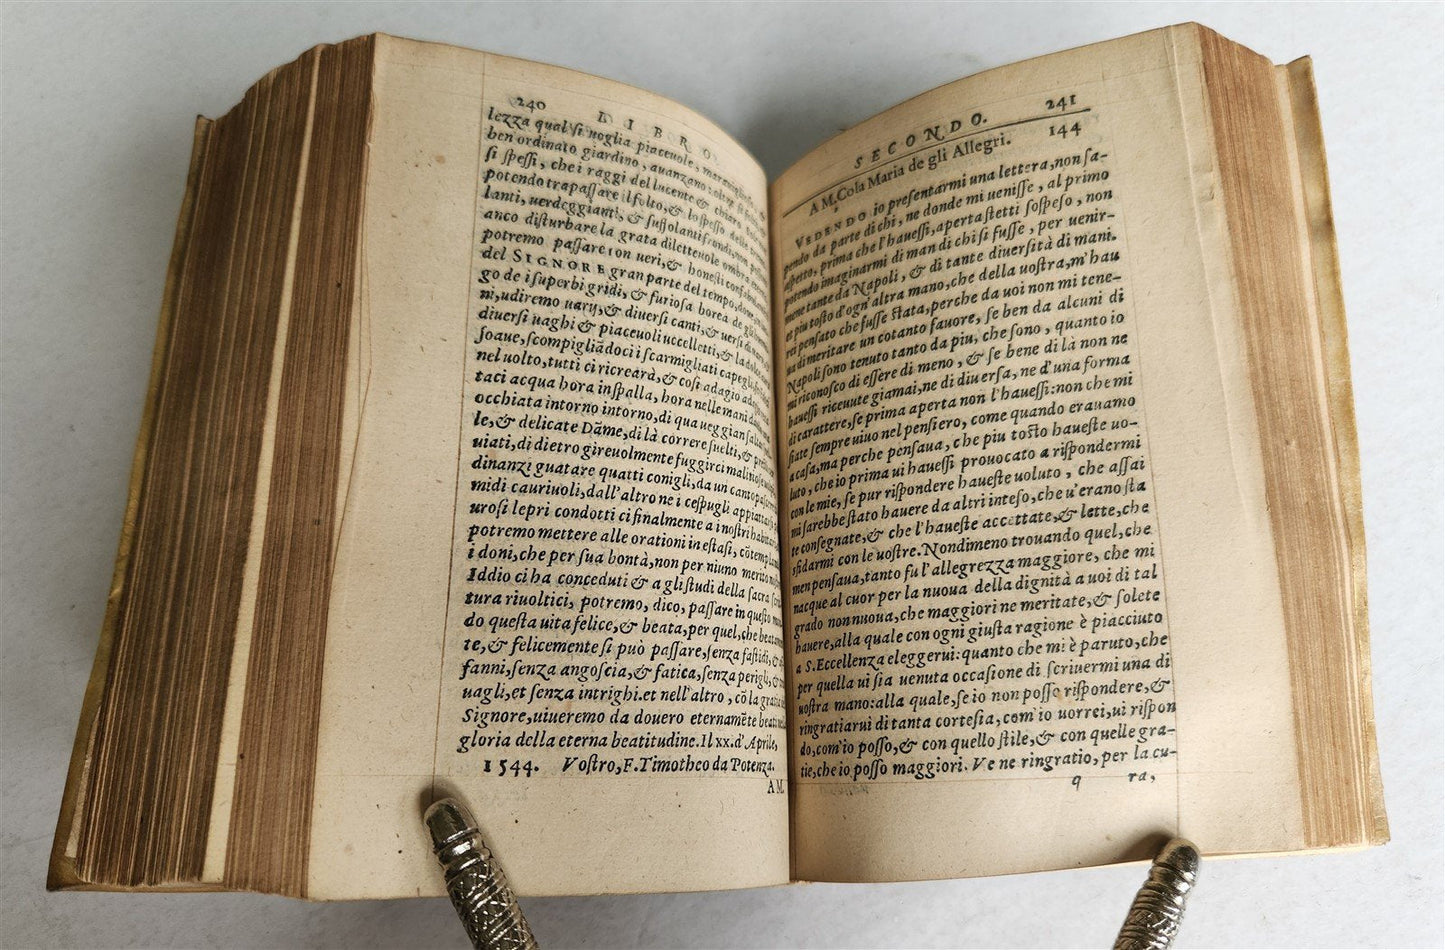 240 LIBRO
lezza qual si voglia piaceuole,
ben ordinato giardino, auanzano
si spessi, che i raggi del lucente & chiaro
potendo trapassare il folto, & lo spesso delle
lanti, uerdeggianti, & sussolanti frondi, non
anco disturbare la grata diletteuole ombra
potremo passare con ueri, & honesti
del SIGNORE gran parte del tempo, doue
go de i superbi gridi, & furiosa borea de gli
ni, udiremo uarij, & diuersi canti, & uersi di
diuersi uaghi & piaceuoli uccelletti, & la dolce
soaue, scompigliãdoci i scarmigliati capegli,
nel uolto, tutti ci ricrearà, & cosi adagio
taci acqua hora in spalla, hora nelle mani
occhiata intorno intorno, di qua ueggian
le, & delicate Dãme, di là correre suelti, &
uiati, di dietro gireuolmente fuggirci
dinanzi guatare quatti conigli, da un canto
midi cauriuoli, dall'altro ne i cespugli appiattarsi
urosi lepri condotti ci finalmente a i nostri
potremo mettere alle orationi in estasi,
i doni, che per sua bontà, non per niuno merito
Iddio ci ha conceduti & a gli studi della sacra
tura riuoltici, potremo, dico, passare in questo
do questa uita felice, & beata, per quel, che
te, & felicemente si può passare, senza fastidi, &
fanni, senza angoscia, & fatica, senza perigli, &
uagli, et senza intrighi. et nell'altro, cõ la gratia
Signore, uiueremo da douero eternamẽte
gloria della eterna beatitudine. Il xx. d'Aprile,
1544. Vostro, F. Timotheo da Potenza.
A M.
SECONDO. 241
144
A M. Cola Maria de gli Allegri.
VEDENDO io presentarmi una lettera, non sa-
pendo da parte di chi, ne donde mi uenisse, al primo
aspetto, prima che l'hauessi, aperta stetti sospeso, non
potendo imaginarmi di man di chi si fusse, per uenir-
mene tante da Napoli, & di tante diuersità di mani.
et piu tosto d'ogn'altra mano, che della uostra, m'hau
rei pensato che fusse stata, perche da uoi non mi tene-
ua di meritare un cotanto fauore, se ben da alcuni di
Napoli sono tenuto tanto da piu, che sono, quanto io
mi riconosco di essere di meno, & se bene di là non ne
hauessi riceuute giamai, ne di diuersa, ne d'una forma
di carattere, se prima aperta non l'hauessi: non che mi
siate sempre uiuo nel pensiero, come quando erauamo
a casa, ma perche pensaua, che piu tosto haueste uo-
luto, che io prima ui hauessi prouocato a rispondermi
con le mie, se pur rispondere haueste uoluto, che assai
mi sarebbe stato hauere da altri inteso, che u'erano sta
te consegnate, & che l'haueste accettate, & lette, che
sfidarmi con le uostre. Nondimeno trouando quel, che
men pensaua, tanto fu l'allegrezza maggiore, che mi
nacque al cuor per la nuoua della dignità a uoi di tal
grado non nuoua, che maggiori ne meritate, & solete
hauere, alla quale con ogni giusta ragione è piacciuto
a S. Eccellenza eleggerui: quanto che mi è paruto, che
per quella ui sia uenuta occasione di scriuermi una di
uostra mano: alla quale, se io non posso rispondere, &
ringratiarui di tanta cortesia, com'io uorrei, ui rispon
do, com'io posso, & con quello stile, & con quelle gra-
tie, che io posso maggiori. Ve ne ringratio, per la cu-
q ra,